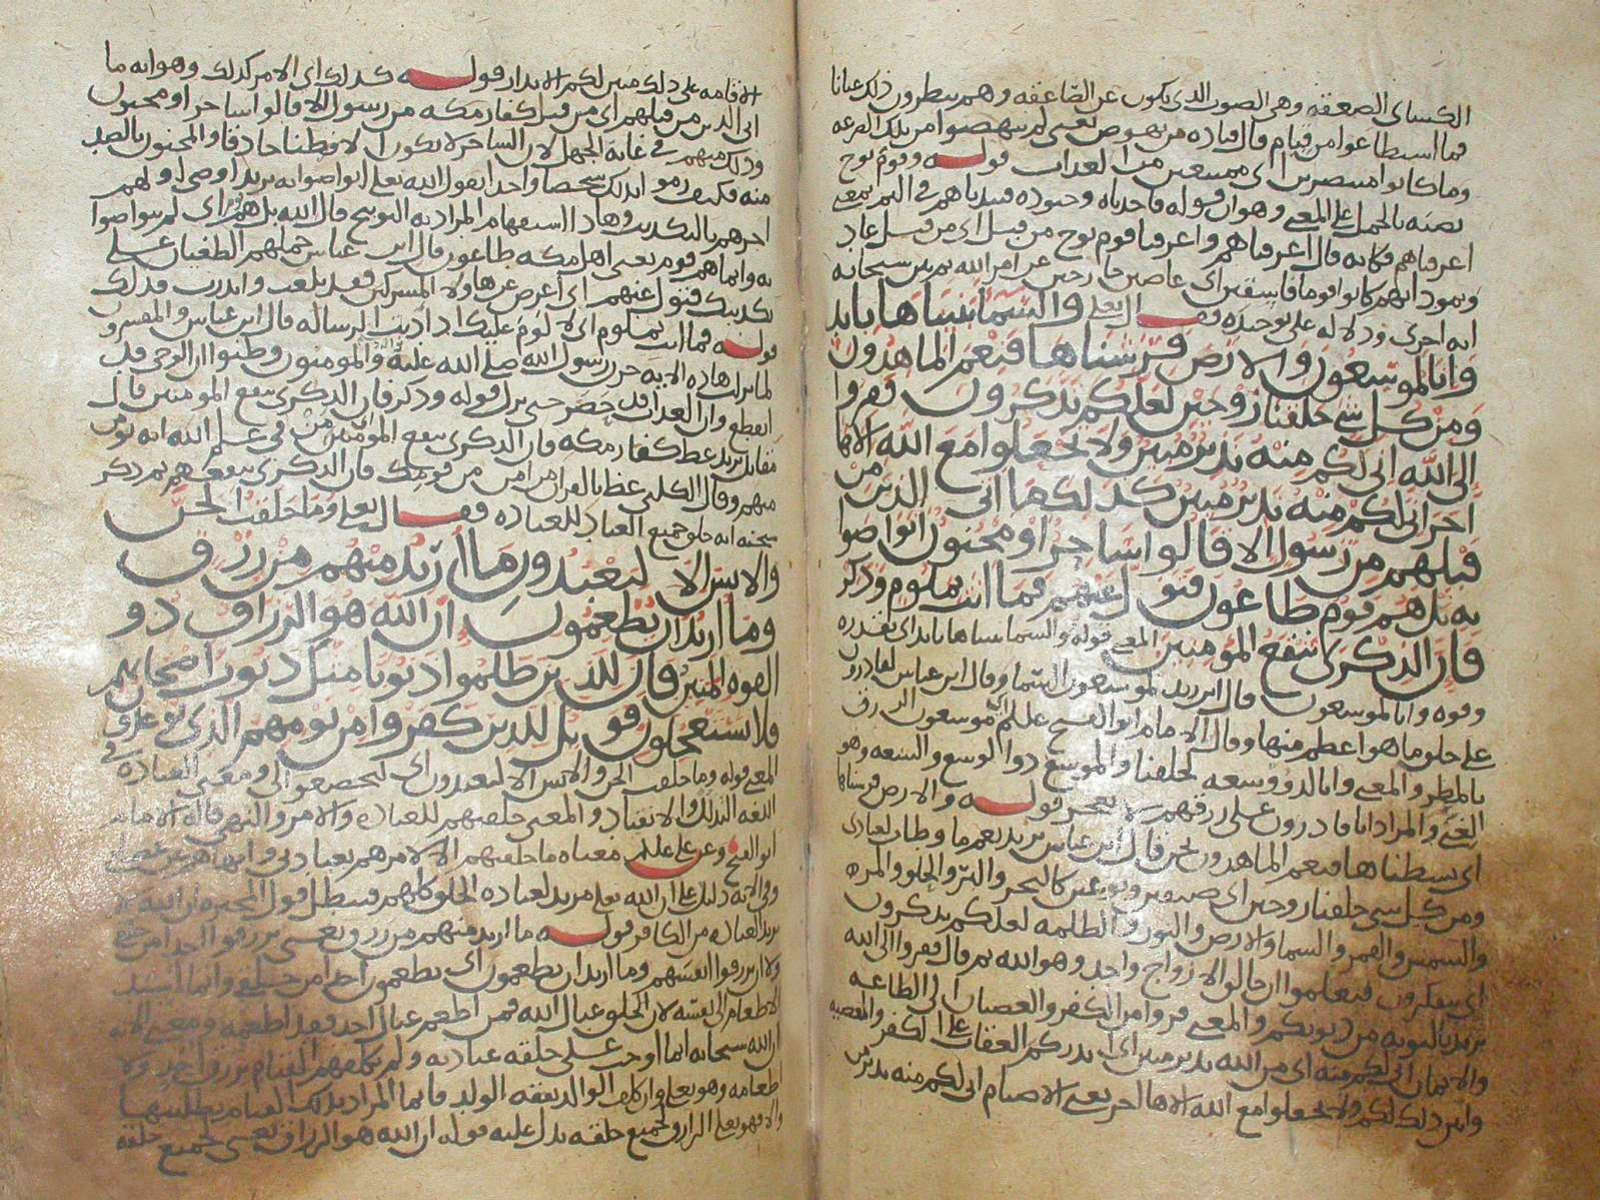 الكسائي الصعقه وهي الصوت الذي يكون عن الصاعقه وهم ينظرون ذلك عيانا
فما استطاعوا من قيام قال قتاده من نهوض يعني لم ينهضوا من تلك الصرعه
وما كانوا منتصرين اي ممتنعين من العذاب قوله وقوم نوح
نصبه بالحمل على المعنى وهو ان قوله فاخذناه وجنوده فنبذناهم في اليم بمعنى
اغرقناهم فكانه قال اغرقناهم واغرقنا قوم نوح من قبل اي من قبل عاد
وثمود انهم كانوا قوما فاسقين اي عاصين خارجين عن امر الله ثم بين سبحانه
ايه اخرى ودلاله على توحيده فقال تعلى والسما بنيناها بايد
وانا لموسعون والارض فرشناها فنعم الماهدون
ومن كل شي خلقنا زوجين لعلكم تذكرون ففروا
الى الله اني لكم منه نذير مبين ولا تجعلوا مع الله الاها
اخر اني لكم منه نذير مبين كذلك ما اتى الذين من
قبلهم من رسول الا قالوا ساحر او مجنون اتواصوا
به بل هم قوم طاغون فتول عنهم فما انت بملوم وذكر
فان الذكرى تنفع المومنين المعنى قوله والسما بنيناها بايد اي بقدره
وقوه وانا لموسعون قال ابن زيد لموسعون السما وقال ابن عباس لقادرون
على خلق ما هو اعظم منها وقال الامام ابو الفتح علملم موسعون الرزق
بالمطر والمعنى وانا لذوو سعه لخلقنا والموسع ذو الوسع والسعه وهو
الغنى والمراد انا قادرون على رزقهم لا نعجز قوله والارض فرشناها
اي بسطناها فنعم الماهدون نحن قال ابن عباس يريد نعم ما وطات لعبادي
ومن كل شي خلقنا زوجين اي صنفين ونوعين كالبحر والبر والحلو والمره
والشمس والقمر والسما والارض والنور والظلمه لعلكم تذكرون
اي تتفكرون فتعلموا ان خالق الازواج واحد وهو الله ثم قال ففروا الى الله
يريد بالتوبه من ذنوبكم والمعنى فروا من الكفر والعصيان الى الطاعه
والايمان اني لكم منه اي من الله نذير مبين اي انذركم العقاب على الكفر والمعصيه
وابين ذلك لكم ولا تجعلوا مع الله الاها اخر يعني الاصنام اني لكم منه نذير من
الاقامه على ذلك مبين لكم الانذار قوله كذلك اي الامر كذلك وهو انه ما
اتى الذين من قبلهم اي من قبل كفار مكه من رسول الا قالوا ساحر او مجنون
وذلك منهم في غايه الجهل لان الساحر لا يكون الا فطنا حاذقا والمجنون بالضد
منه فكيف بذلك شخصا واحدا يقول الله تعلى اتواصوا به يريد اوصى اولهم
اخرهم بالتكذيب وهاذا استفهام المراد به التوبيخ قال الله بل هم اي لم يتواصوا
به وانما هم قوم يعني اهل مكه طاغون قال ابن عباس حملهم الطغيان على
تكذيبك فتول عنهم اي اعرض عن هاولا المشركين فقد بلغت وانذرت فذلك
قوله فما انت بملوم اي لا لوم عليك اذ اديت الرساله قال ابن عباس والمفسرون
لما نزلت هاذه الايه حزن رسول الله صلى الله عليه والمومنون وظنوا ان الوحي قد
انقطع وان العذاب قد حضر حتى نزل قوله وذكر فان الذكرى تنفع المومنين قال
مقاتل يريد عظ كفار مكه فان الذكرى تنفع المومنين من في علم الله انه يومن
منهم وقال الكلبي عظ بالقران من امن من قومك فان الذكرى تنفعهم ثم ذكر
سبحنه انه خلق جميع العباد للعباده فقال تعلى وما خلقت الجن
والانس الا ليعبدون ما اريد منهم من رزق
وما اريد ان يطعمون ان الله هو الرزاق ذو
القوه المتين فان للذين ظلموا ذنوبا مثل ذنوب اصحابهم
فلا يستعجلون فويل للذين كفروا من يومهم الذي يوعدون
المعنى قوله وما خلقت الجن والانس الا ليعبدون اي ليخضعوا لي ومعنى العباده في
اللغه التذلل والانقياد والمعنى خلقتهم للعباده والامر والنهي قاله الامام
ابو الفتح وعن علي علملم معناه ما خلقتهم الا لامرهم بعبادتي وانهاهم عن
وفي الايه دليل على ان الله تعلى مريد لعباده الخلق كلهم فبطل قول المجبره ان الله لا
يريد العباده من الكافر قوله ما اريد منهم من رزق يعني ان يرزقوا احدا من خلقي
ولا ان يرزقوا انفسهم وما اريد ان يطعمون اي يطعمون احدا من خلقي وانما اسند
الاطعام الى نفسه لان الخلق عيال الله فمن اطعم عيال احد فقد اطعمه ومعنى الايه
ان الله سبحانه انما اوجب على خلقه عبادته ولم يكلفهم القيام برزق احد ولا
اطعامه وهو تعلى وان كلف الوالد نفقه الولد فانما المراد بذلك القيام بطلبها
والا فهو تعلى الرازق لجميع خلقه يدل عليه قوله ان الله هو الرزاق يعني لجميع خلقه